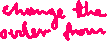 change the
order from